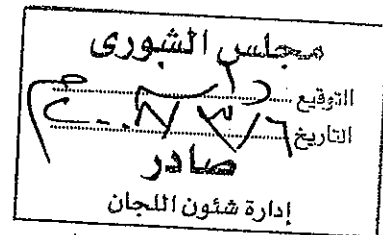 مجلس الشورى
التوقيع
التاريخ
صادر
إدارة شئون اللجان